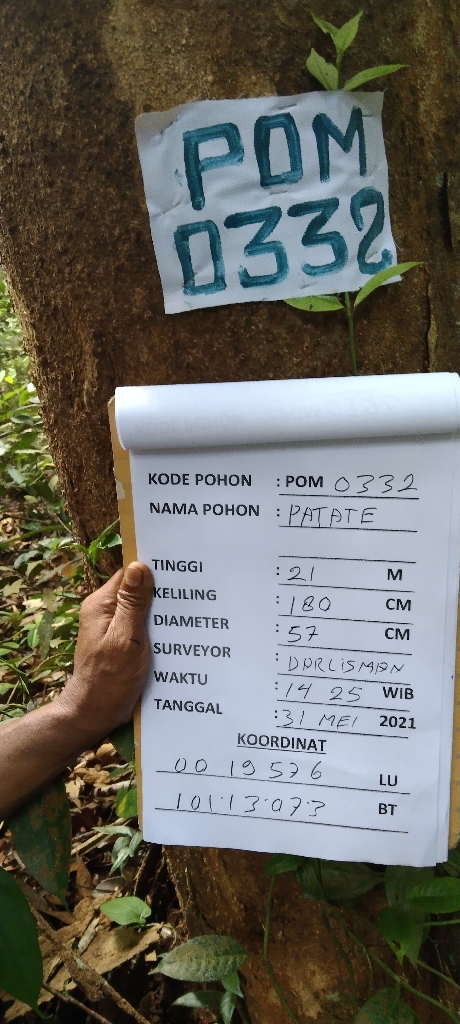 POM
0332
KODE POHON : POM 0332
NAMA POHON : PATATE
TINGGI : 21 M
KELILING : 180 CM
DIAMETER : 57 CM
SURVEYOR : DARLISMAN
WAKTU : 14 25 WIB
TANGGAL : 31 MEI 2021
KOORDINAT
00 19 576 LU
101:13:073 BT